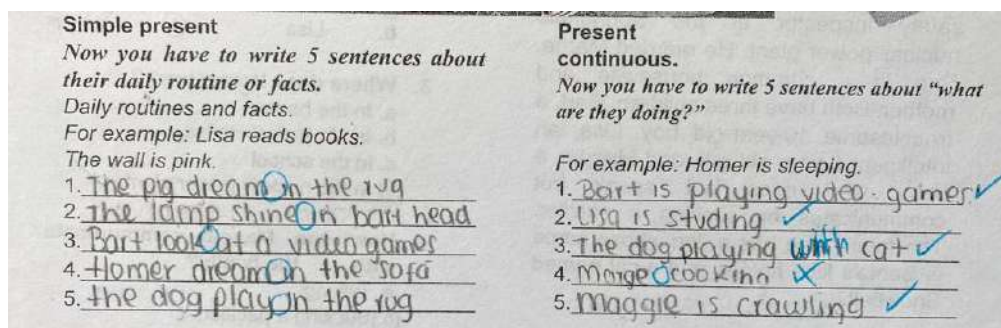 Simple present
Now you have to write 5 sentences about
their daily routine or facts.
Daily routines and facts.
For example: Lisa reads books.
The wall is pink.
1. The pig dream in the rug
2. The lamp shine in bart head
3. Bart look at a video games
4. Homer dream in the sofa
5. the dog play in the rug
Present
continuous.
Now you have to write 5 sentences about “what
are they doing?”
For example: Homer is sleeping.
1. Bart is playing video games
2. Lisa is studing
3. The dog playing with cat
4. Marge cookinn
5. Maggie is crawling